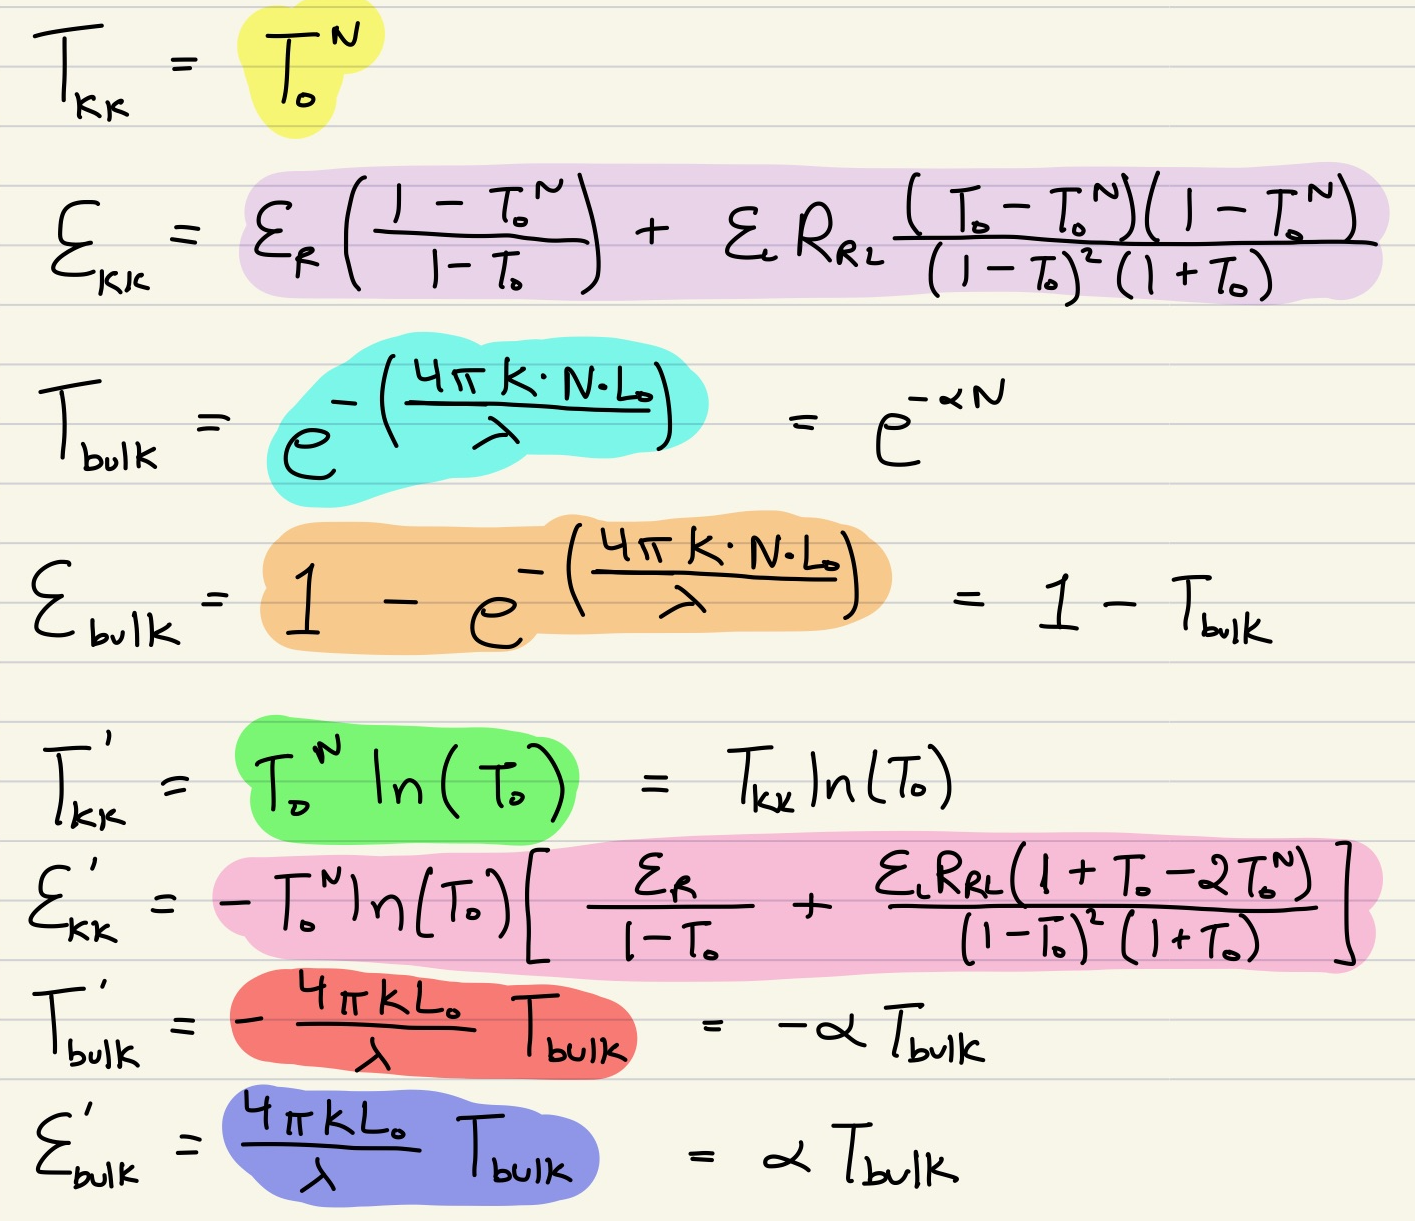 T_KK = T_0^N
ε_KK = ε_R ((1 - T_0^N) / (1 - T_0)) + ε_L R_RL ((T_0 - T_0^N)(1 - T_0^N)) / ((1 - T_0)^2 (1 + T_0))
T_bulk = e^-((4π K · N · L_0) / λ) = e^-αN
ε_bulk = 1 - e^-((4π K · N · L_0) / λ) = 1 - T_bulk
T_KK' = T_0^N ln(T_0) = T_KK ln(T_0)
ε_KK' = - T_0^N ln(T_0) [ε_R / (1 - T_0) + (ε_L R_RL (1 + T_0 - 2T_0^N)) / ((1 - T_0)^2 (1 + T_0))]
T_bulk' = - (4π K L_0 / λ) T_bulk = -α T_bulk
ε_bulk' = (4π K L_0 / λ) T_bulk = α T_bulk